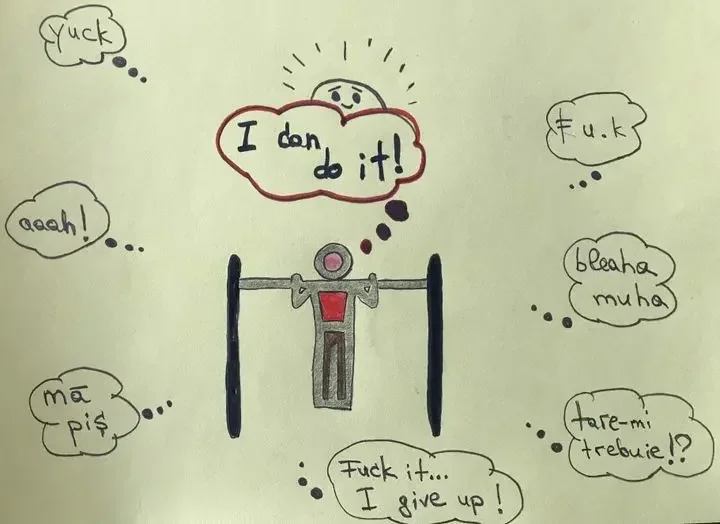 yuck
I can
do it!
F u.k
aaah!
bleaha
muha
mā
piș
tare-mi
trebuie!?
Fuck it...
I give up!